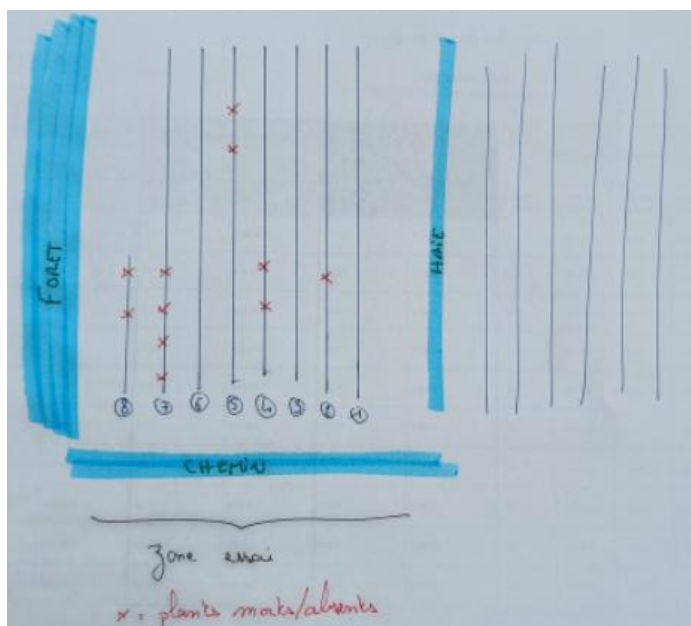 FORET
HAIE
8 7 6 5 4 3 2 1
CHEMIN
Zone essai
x = plants morts/absents